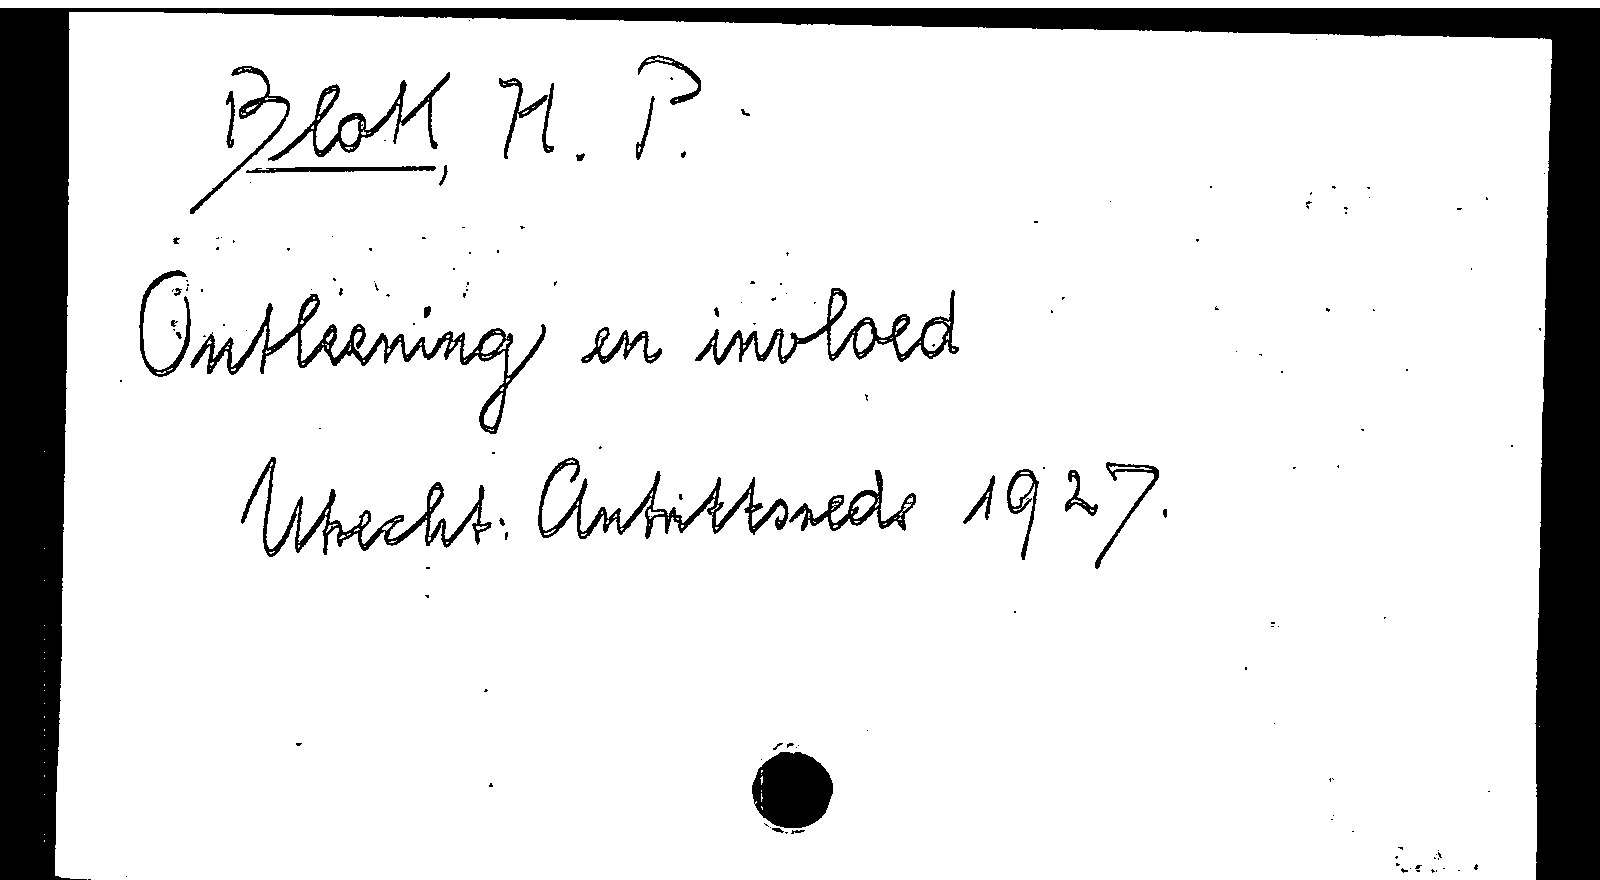 Blok, H. P.
Ontleening en invloed
Utrecht: Antrittsrede 1927.